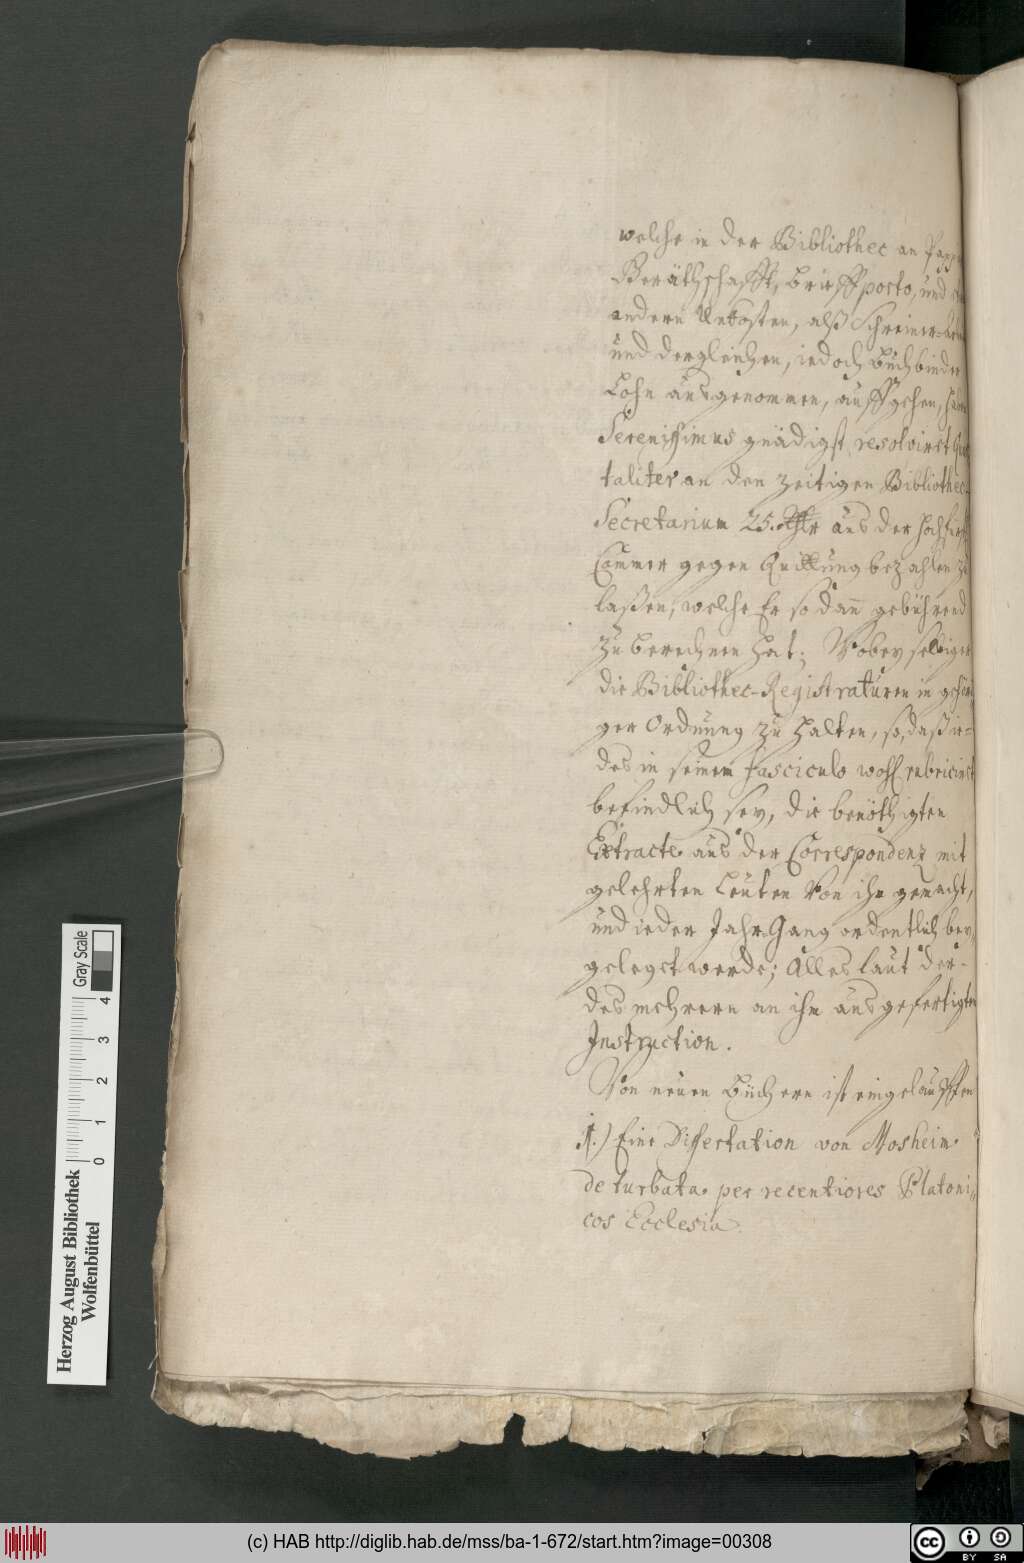 welche in der Bibliothec an Papp
Geräthschafft, brieffporto, und
andern Unkosten, alß Schreiner-
und dergleichen, iedoch buchbinder
Lohn ausgenommen, auffgehen, haben
Serenissimus gnädigst resolviret Quar
taliter an den zeitigen Bibliothec-
Secretarium 25. Thlr aus der hochfürstl
Cammer gegen Quittung bezahlen zu
laßen, welche Er sodann gebührend
zu berechnen hat; Wobey selbiger
die Bibliothec-Registraturen in gehöri
ger Ordnung zu halten, so, daß ie-
des in seinem fasciculo wohl rubriciret
befindlich sey, die benöthigten
Extracte aus der Correspondenz mit
gelehrten Leuten von ihm gemacht,
und ieder Jahr-Gang ordentlich bey,
geleget werde; Alles laut der-
des mehrern an ihm ausgefertigten
Instruction.
Von neuen Büchern ist eingelauffen
1.) Eine Dissertation von Mosheim
de turbata per recentiores Platoni-
cos Ecclesia.
Herzog August Bibliothek
Wolfenbüttel
Gray Scale
0 1 2 3 4
(c) HAB http://diglib.hab.de/mss/ba-1-672/start.htm?image=00308
cc BY SA